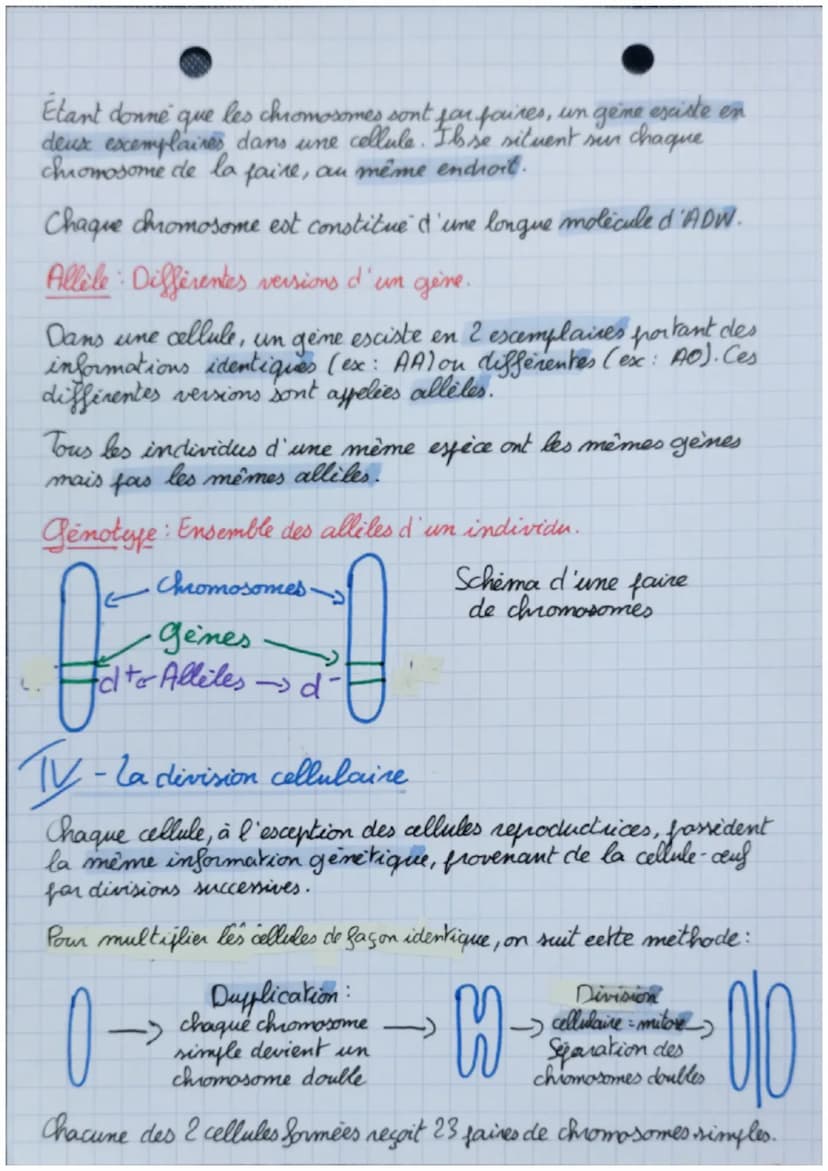 Étant donné que les chromosomes sont par paires, un gène existe en
deux exemplaires dans une cellule. Ils se situent sur chaque
chromosome de la paire, au même endroit.
Chaque chromosome est constitué d'une longue molécule d'ADN.
Allèle : Différentes versions d'un gène.
Dans une cellule, un gène existe en 2 exemplaires portant des
informations identiques (ex : AA) ou différentes (ex : AO). Ces
différentes versions sont appelées allèles.
Tous les individus d'une même espèce ont les mêmes gènes
mais pas les mêmes allèles.
Génotype : Ensemble des allèles d'un individu.
Chromosomes
Gènes
d+ Allèles d-
Schéma d'une paire
de chromosomes
IV - La division cellulaire
Chaque cellule, à l'exception des cellules reproductrices, possèdent
la même information génétique, provenant de la cellule-œuf
par divisions successives.
Pour multiplier les cellules de façon identique, on suit cette méthode :
Duplication :
chaque chromosome
simple devient un
chromosome double
Division
cellulaire = mitose
Séparation des
chromosomes doubles
Chacune des 2 cellules formées reçoit 23 paires de chromosomes simples.